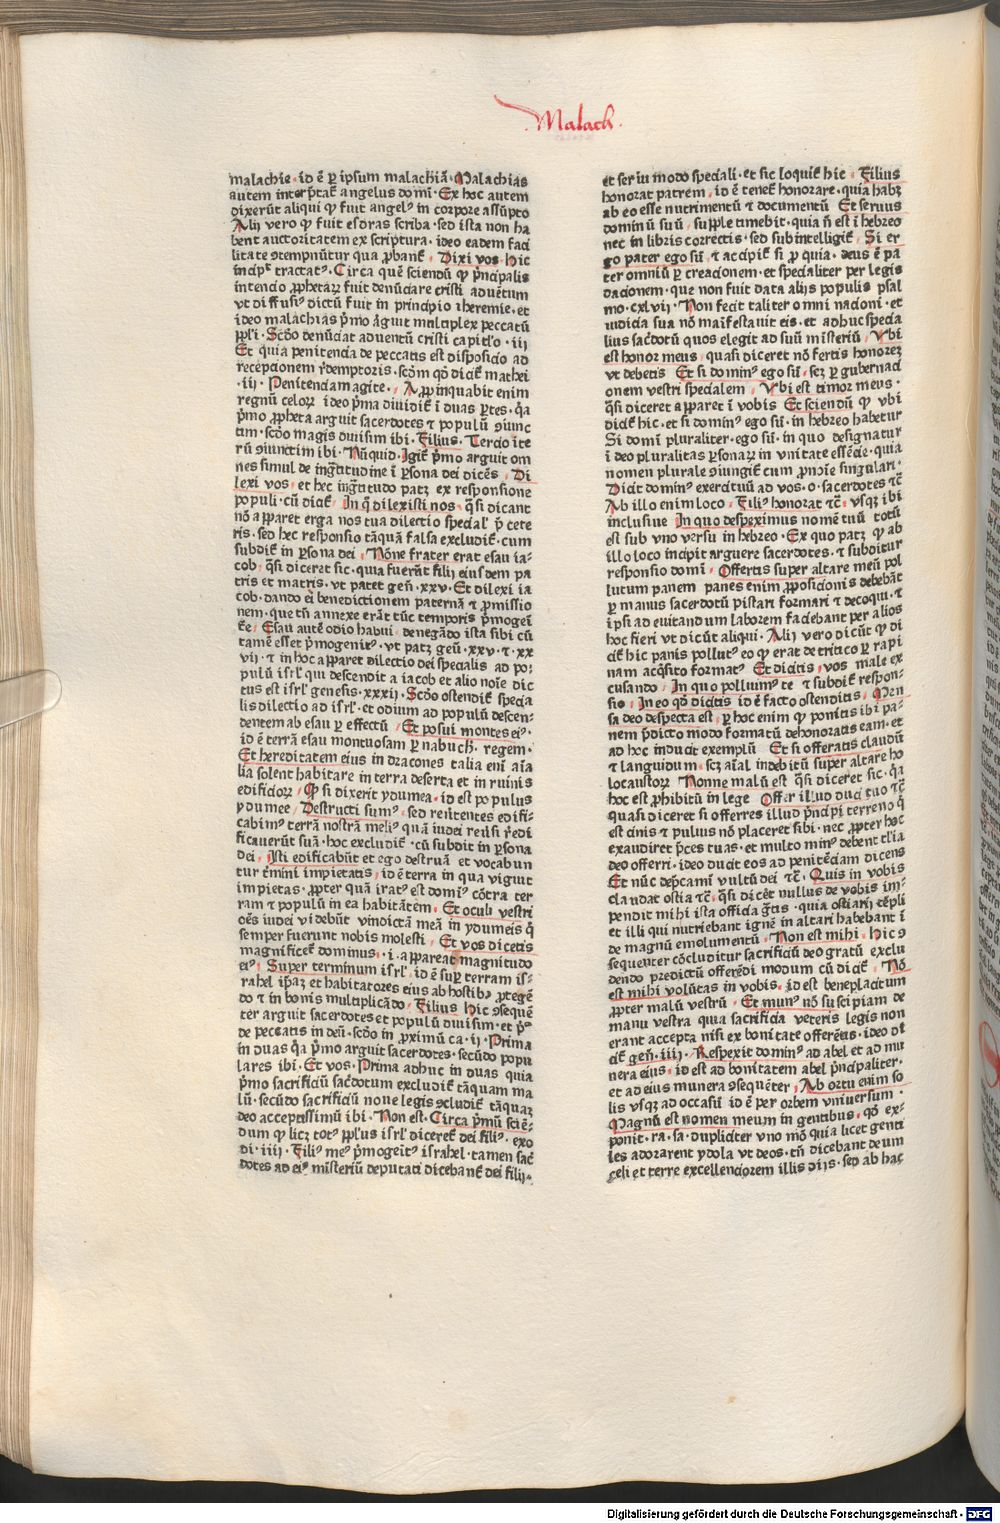 Malach.
malachie · id ē ꝑ ipsum malachiā · Malachias
autem interp̄tat᷑ angelus domī · Ex hoc autem
dixerūt aliqui ꝙ fuit angelꝰ in corpore assūpto
Alij vero ꝙ fuit esdras scriba · sed ista non ha
bent auctoritatem ex scriptura · ideo eadem faci
litate ꝯtempnūtur qua ꝓbant᷑ · Dixi vos · hic
incipit᷑ tractatꝰ · Circa quē sciendū ꝙ p̄ncipalis
intencio ꝓphetaꝝ fuit denūciare cristi aduētum
vt diffusiꝰ dictū fuit in principio iheremie · et
ideo malachias pͥmo arguit multiplex peccatū
ppl̄i · Scd̄o denūciat aduentū cristi capitl̓o · iij
Et quia penitencia de peccatis est disposicio ad
recepcionem redemptoris · scd̄m qd̓ dicit᷑ mathei
· iij · Penitenciam agite · Appropinquabit enim
regnū celoꝝ ideo pͥma diuidit᷑ ī duas ꝑtes · qͣa
pͥmo ꝓpheta arguit sacerdotes ⁊ populū ꝯiunc
tim · scd̄o magis diuisim ibi · Filius · Tercio ite
rū ꝯiunctim ibi · Nūquid · Igit᷑ pͥmo arguit om
nes simul de ingͣtitudine ī ꝑsona dei dicēs · Di
lexi vos · et hec ingͣtitudo patꝫ ex responsione
populi · cū dicit᷑ · In qͦ dilexisti nos · qͣsi dicant
nō apparet erga nos tua dilectio special̓ p̄ cete
ris · sed hec responsio tāquā falsa excludit᷑ · cum
subdit᷑ in ꝑsona dei · Nōne frater erat esau ia-
cob · qͣsi diceret sic · quia fuerūt filij eiusdem pa
tris et matris · vt patet geñ · xxv · Et dilexi ia
cob · dando ei benedictionem paternā ⁊ ꝓmissio
nem · que tn̄ annexe erāt tūc temporis pͥmogeī
tͤe · Esau autē odio habui · denegādo ista sibi cū
tamē esset pͥmogenitꝰ · vt patꝫ geñ · xxv · ⁊ · xx
vij · ⁊ in hoc apparet dilectio dei specialis ad po-
pulū isrl̓ qui descendit a iacob et alio noīe dic
tus est isrl̓ genesis · xxxij · Scd̄o ostendit᷑ specia
lis dilectio ad isrl̓ · et odium ad populū descen-
dentem ab esau ꝑ effectū · Et posui montes eiꝰ ·
id ē terrā esau montuosam ꝑ nabuch · regem ·
Et hereditatem eius in dracones talia eni aīa
lia solent habitare in terra deserta et in ruinis
edificioꝝ · Qꝙ si dixerit ydumea · id est populus
ydumee · Destructi sumꝰ · sed reuertentes edifi-
cabimꝰ terrā nostrā meliꝰ quā iudei reūsi redi
ficauerūt suā · hoc excludit᷑ · cū subdit in ꝑsona
dei · Isti edificabūt et ego destruā et vocabun
tur tͤmini impietatis · id ē terra in qua viguit
impietas · ꝓpter quā iratꝰ est domīꝰ cōtra ter
ram ⁊ populū in ea habitātem · Et oculi vestri
oēs iudei videbūt vindictā meā in ydumeis qͥ
semper fuerunt nobis molesti · Et vos dicetis
magnificet᷑ dominus · i · appareat magnitudo
eiꝰ · Super terminum isrl̓ · id ē suꝑ terram is-
rahel ip̄aꝫ et habitatores eius ab hostibꝫ ꝓtegē
do ⁊ in bonis multiplicādo · Filius · hic ꝯsequē
ter arguit sacerdotes et populū diuisim · et pͥo
de peccatis in deū · scd̄o in ꝓximū ca · ij · Prima
in duas qͣa pͥmo arguit sacerdotes · secūdo popu
lares ibi · Et vos · Prima adhuc in duas quia
pͥmo sacrificiū sacd̓otum excludit᷑ tāquam ma
lū · secūdo sacrificiū noue legis ꝯcludit᷑ tāquaꝫ
deo acceptissimū ibi · Non est · Circa pͥmū sciē-
dum ꝙ licꝫ totꝰ ppl̓us isrl̓ diceret᷑ dei filiꝰ · exo
di · iiij · Filiꝰ meꝰ pͥmogeītꝰ israhel · tamen sac̓
dotes ad eiꝰ mīsteriū deputati dicebant᷑ dei filij ·
et serui modo speciali · et sic loquit᷑ hic · Filius
honorat patrem · id ē tenet᷑ honorare · quia habꝫ
ab eo esse nutrimentū ⁊ documentū Et seruus
dominū suū · supple timebit · quia n̄ est ī hebreo
nec in libris correctis · sed subintelligit᷑ · Si er
go pater ego sū · ⁊ accipit᷑ si ꝓ quia · deus ē pa
ter omniū ꝑ creacionem · et specialiter per legis
dacionem · que non fuit data alijs populis psal
mo · cxlvij · Non fecit taliter omni nacioni · et
iudicia sua nō maīfestauit eis · et adhuc specia
lius sacd̓otū quos elegit ad suū misteriū · Vbi
est honor meus · quasi diceret nō fertis honoreꝫ
vt debetis Et si dominꝰ ego sū · scꝫ ꝑ gubernaci
onem vestri specialem · Vbi est timor meus ·
qͣsi diceret apparet ī vobis Et sciendū ꝙ vbi
dicit᷑ hic · et si dominꝰ ego sū · in hebreo habetur
Si domī pluraliter · ego sū · in quo designatur
ī deo pluralitas ꝑsonaꝝ in vnitate essēcie · quia
nomen plurale ꝯiungit᷑ cum ꝓnoīe singulari ·
Dicit dominꝰ exercituū ad vos · o · sacerdotes ⁊c̄
Ab illo enim loco · Filiꝰ honorat ⁊c̄ · vsqꝫ ibi
inclusiue In quo despeximus nomē tuū totū
est sub vno versu in hebreo · Ex quo patꝫ ꝙ ab
illo loco incipit arguere sacerdotes · ⁊ subditur
responsio domī · Offertis super altare meū pol
lutum panem panes enim ꝓposicionis debebāt
ꝑ manus sacerdotū pistari formari ⁊ decoqui · ⁊
ipsi ad euitandum laborem faciebant per alios
hoc fieri vt dicūt aliqui · Alij vero dicūt ꝙ di
cit᷑ hic panis pollutꝰ eo ꝙ erat de tritico ꝑ rapi
nam acqͥsito formatꝰ Et dicitis · vos male ex
cusando · In quo polluimꝰ te ⁊ subdit᷑ respon-
sio · In eo qd̓ dicitis id ē facto ostenditis · Men
sa deo despecta est · ꝑ hoc enim ꝙ ponitis ibi pa-
nem p̄dicto modo formatū dehonoratis eam · et
ad hoc inducit exemplū Et si offeratis claudū
⁊ languidum · scꝫ aīal indebitū super altare ho
locaustoꝝ Nonne malū est qͣsi diceret sic · qͣa
hoc est ꝓhibitū in lege Offer illud duci tuo ⁊c̄
quasi diceret si offerres illud p̄ncipi terreno qͥ
est cinis ⁊ puluis nō placeret sibi · nec ꝓpter hoc
exaudiret p̄ces tuas · et multo minꝰ debent tl̓ia
deo offerri · ideo ducit eos ad penitēciam dicens
Et nūc dep̄cami vultū dei ⁊c̄ · Quis in vobis
claudat ostia ⁊c̄ · qͣsi dicēt nullus de vobis im-
pendit mihi ista officia gͣtis · quia ostiarij tēpli
et illi qui nutriebant ignē in altari habebant ī
de magnū emolumentū · Non est mihi · hic ꝯ
sequenter cōcluditur sacrificiū deo gratū exclu
dendo predictū offerēdi modum cū dicit᷑ · Nō
est mihi volūtas in vobis · id est beneplacitum
ꝓpter malū vestrū · Et munꝰ nō suscipiam de
manu vestra quia sacrificia veteris legis non
erant accepta nisi ex bonitate offerētis · ideo di
cit᷑ geñ · iiij · Respexit dominꝰ ad abel et ad mu
nera eius · id est ad bonitatem abel p̄ncipaliter ·
et ad eius munera ꝯsequēter · Ab ortu enim so
lis vsqꝫ ad occasū id ē per orbem vniuersum ·
Magnū est nomen meum in gentibus · qd̓ ex-
ponit · ra · sa · dupliciter vno mō quia licet genti
les adorarent ydola vt deos · tn̄ dicebant deum
celi et terre excellenciorem illis dijs · sed ab hac
Digitalisierung gefördert durch die Deutsche Forschungsgemeinschaft - DFG